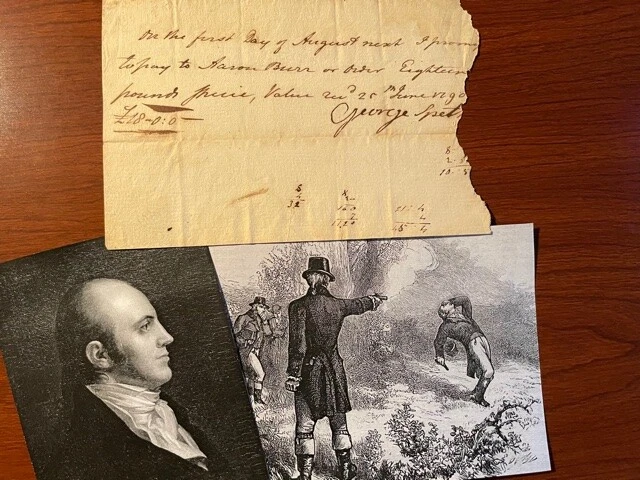 On the first Day of August next I prom
to pay to Aaron Burr or Order Eighteen
pounds Specie, Value recd 25th June
£18-0:0
George
8
4
32